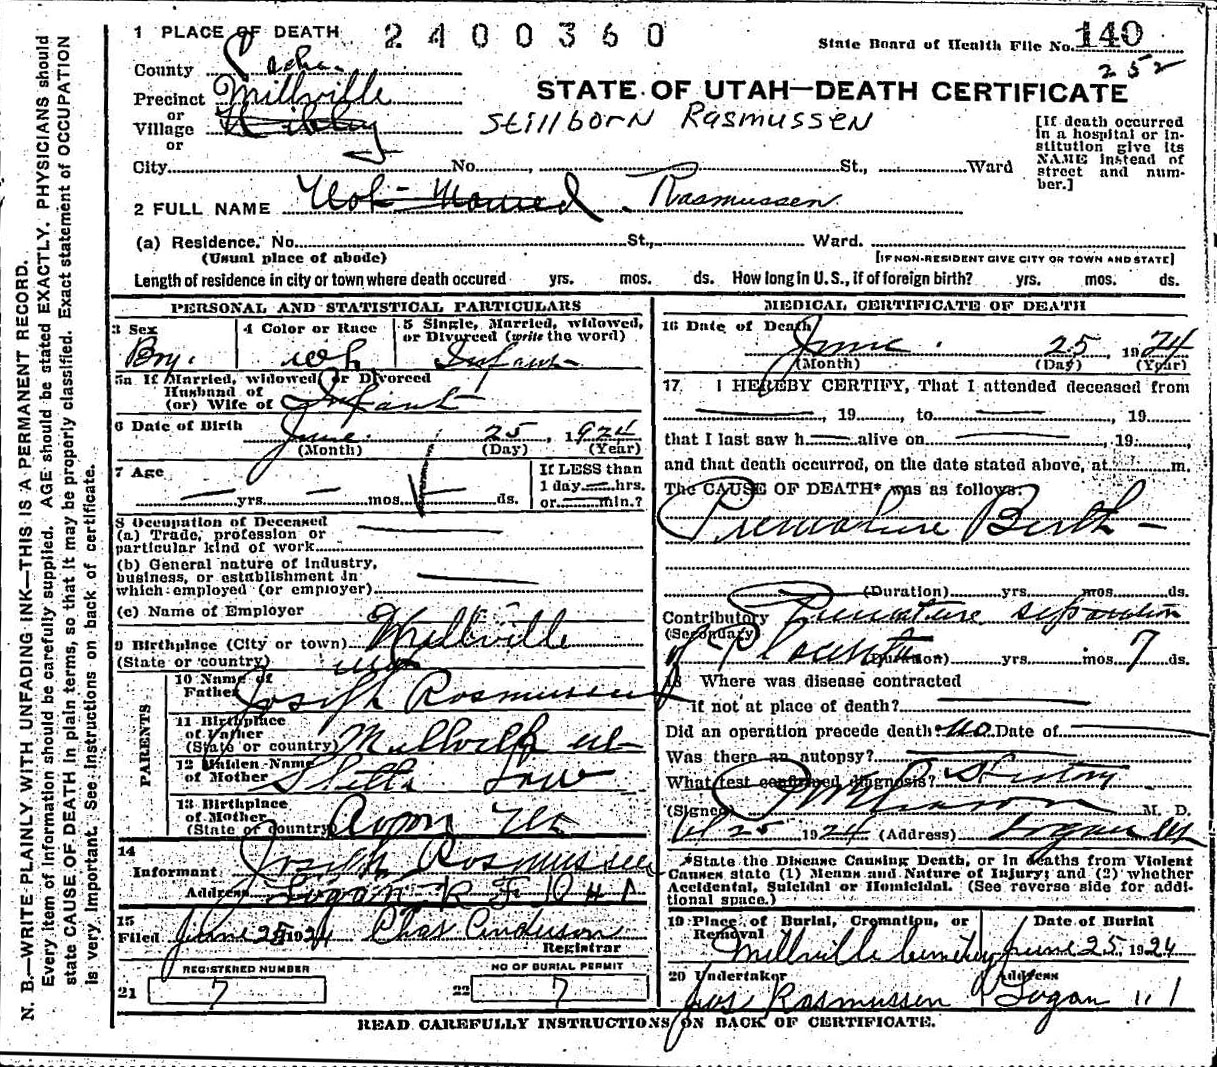 N. B.—WRITE PLAINLY WITH UNFADING INK—THIS IS A PERMANENT RECORD.
Every item of information should be carefully supplied. AGE should be stated EXACTLY. PHYSICIANS should
state CAUSE OF DEATH in plain terms, so that it may be properly classified. Exact statement of OCCUPATION
is very important. See instructions on back of certificate.
1 PLACE OF DEATH 2400360
State Board of Health File No. 140
252
County Cache
Precinct Millville
or
Village
or
STATE OF UTAH—DEATH CERTIFICATE
Stillborn Rasmussen
[If death occurred
in a hospital or in-
stitution give its
NAME instead of
street and num-
ber.]
City No. St., Ward
2 FULL NAME Not Named Rasmussen
(a) Residence. No. St., Ward.
(Usual place of abode) [IF NON-RESIDENT GIVE CITY OR TOWN AND STATE]
Length of residence in city or town where death occured yrs. mos. ds. How long in U. S., if of foreign birth? yrs. mos. ds.
PERSONAL AND STATISTICAL PARTICULARS
3 Sex
Boy.
4 Color or Race
Wh
5 Single, Married, widowed,
or Divorced (write the word)
Infant
5a If Married, widowed, or Divorced
Husband of
(or) Wife of Infant
6 Date of Birth
June 25, 1924
(Month) (Day) (Year)
7 Age
yrs. mos. ds.
If LESS than
1 day hrs.
or min.?
8 Occupation of Deceased
(a) Trade, profession or
particular kind of work
(b) General nature of industry,
business, or establishment in
which employed (or employer)
(c) Name of Employer
9 Birthplace (City or town) Millville
(State or country) Utah
PARENTS
10 Name of
Father Joseph Rasmussen
11 Birthplace
of Father
(State or country) Millville Ut
12 Maiden Name
of Mother Stella Law
13 Birthplace
of Mother
(State or country) Avon Ut
14
Informant Joseph Rasmussen
Address Logan R F D # 1
15
Filed June 25 1924 Chas Anderson
Registrar
REGISTERED NUMBER
21 7
NO OF BURIAL PERMIT
22 7
MEDICAL CERTIFICATE OF DEATH
16 Date of Death
June 25, 1924
(Month) (Day) (Year)
17 I HEREBY CERTIFY, That I attended deceased from
, 19 , to , 19
that I last saw h alive on , 19
and that death occurred, on the date stated above, at m.
The CAUSE OF DEATH* was as follows:
Premature Birth
(Duration) yrs. mos. ds.
Contributory Premature separation
(Secondary)
of Placenta (Duration) yrs. mos. 7 ds.
18 Where was disease contracted
if not at place of death?
Did an operation precede death? No. Date of
Was there an autopsy?
What test confirmed diagnosis? History
(Signed) M. D.
25 1924 (Address) Logan Ut
*State the Disease Causing Death, or in deaths from Violent
Causes state (1) Means and Nature of Injury; and (2) whether
Accidental, Suicidal or Homicidal. (See reverse side for addi-
tional space.)
19 Place of Burial, Cremation, or
Removal
Millville Cemetery
Date of Burial
June 25, 1924
20 Undertaker
Jos Rasmussen
Address
Logan
READ CAREFULLY INSTRUCTIONS ON BACK OF CERTIFICATE.